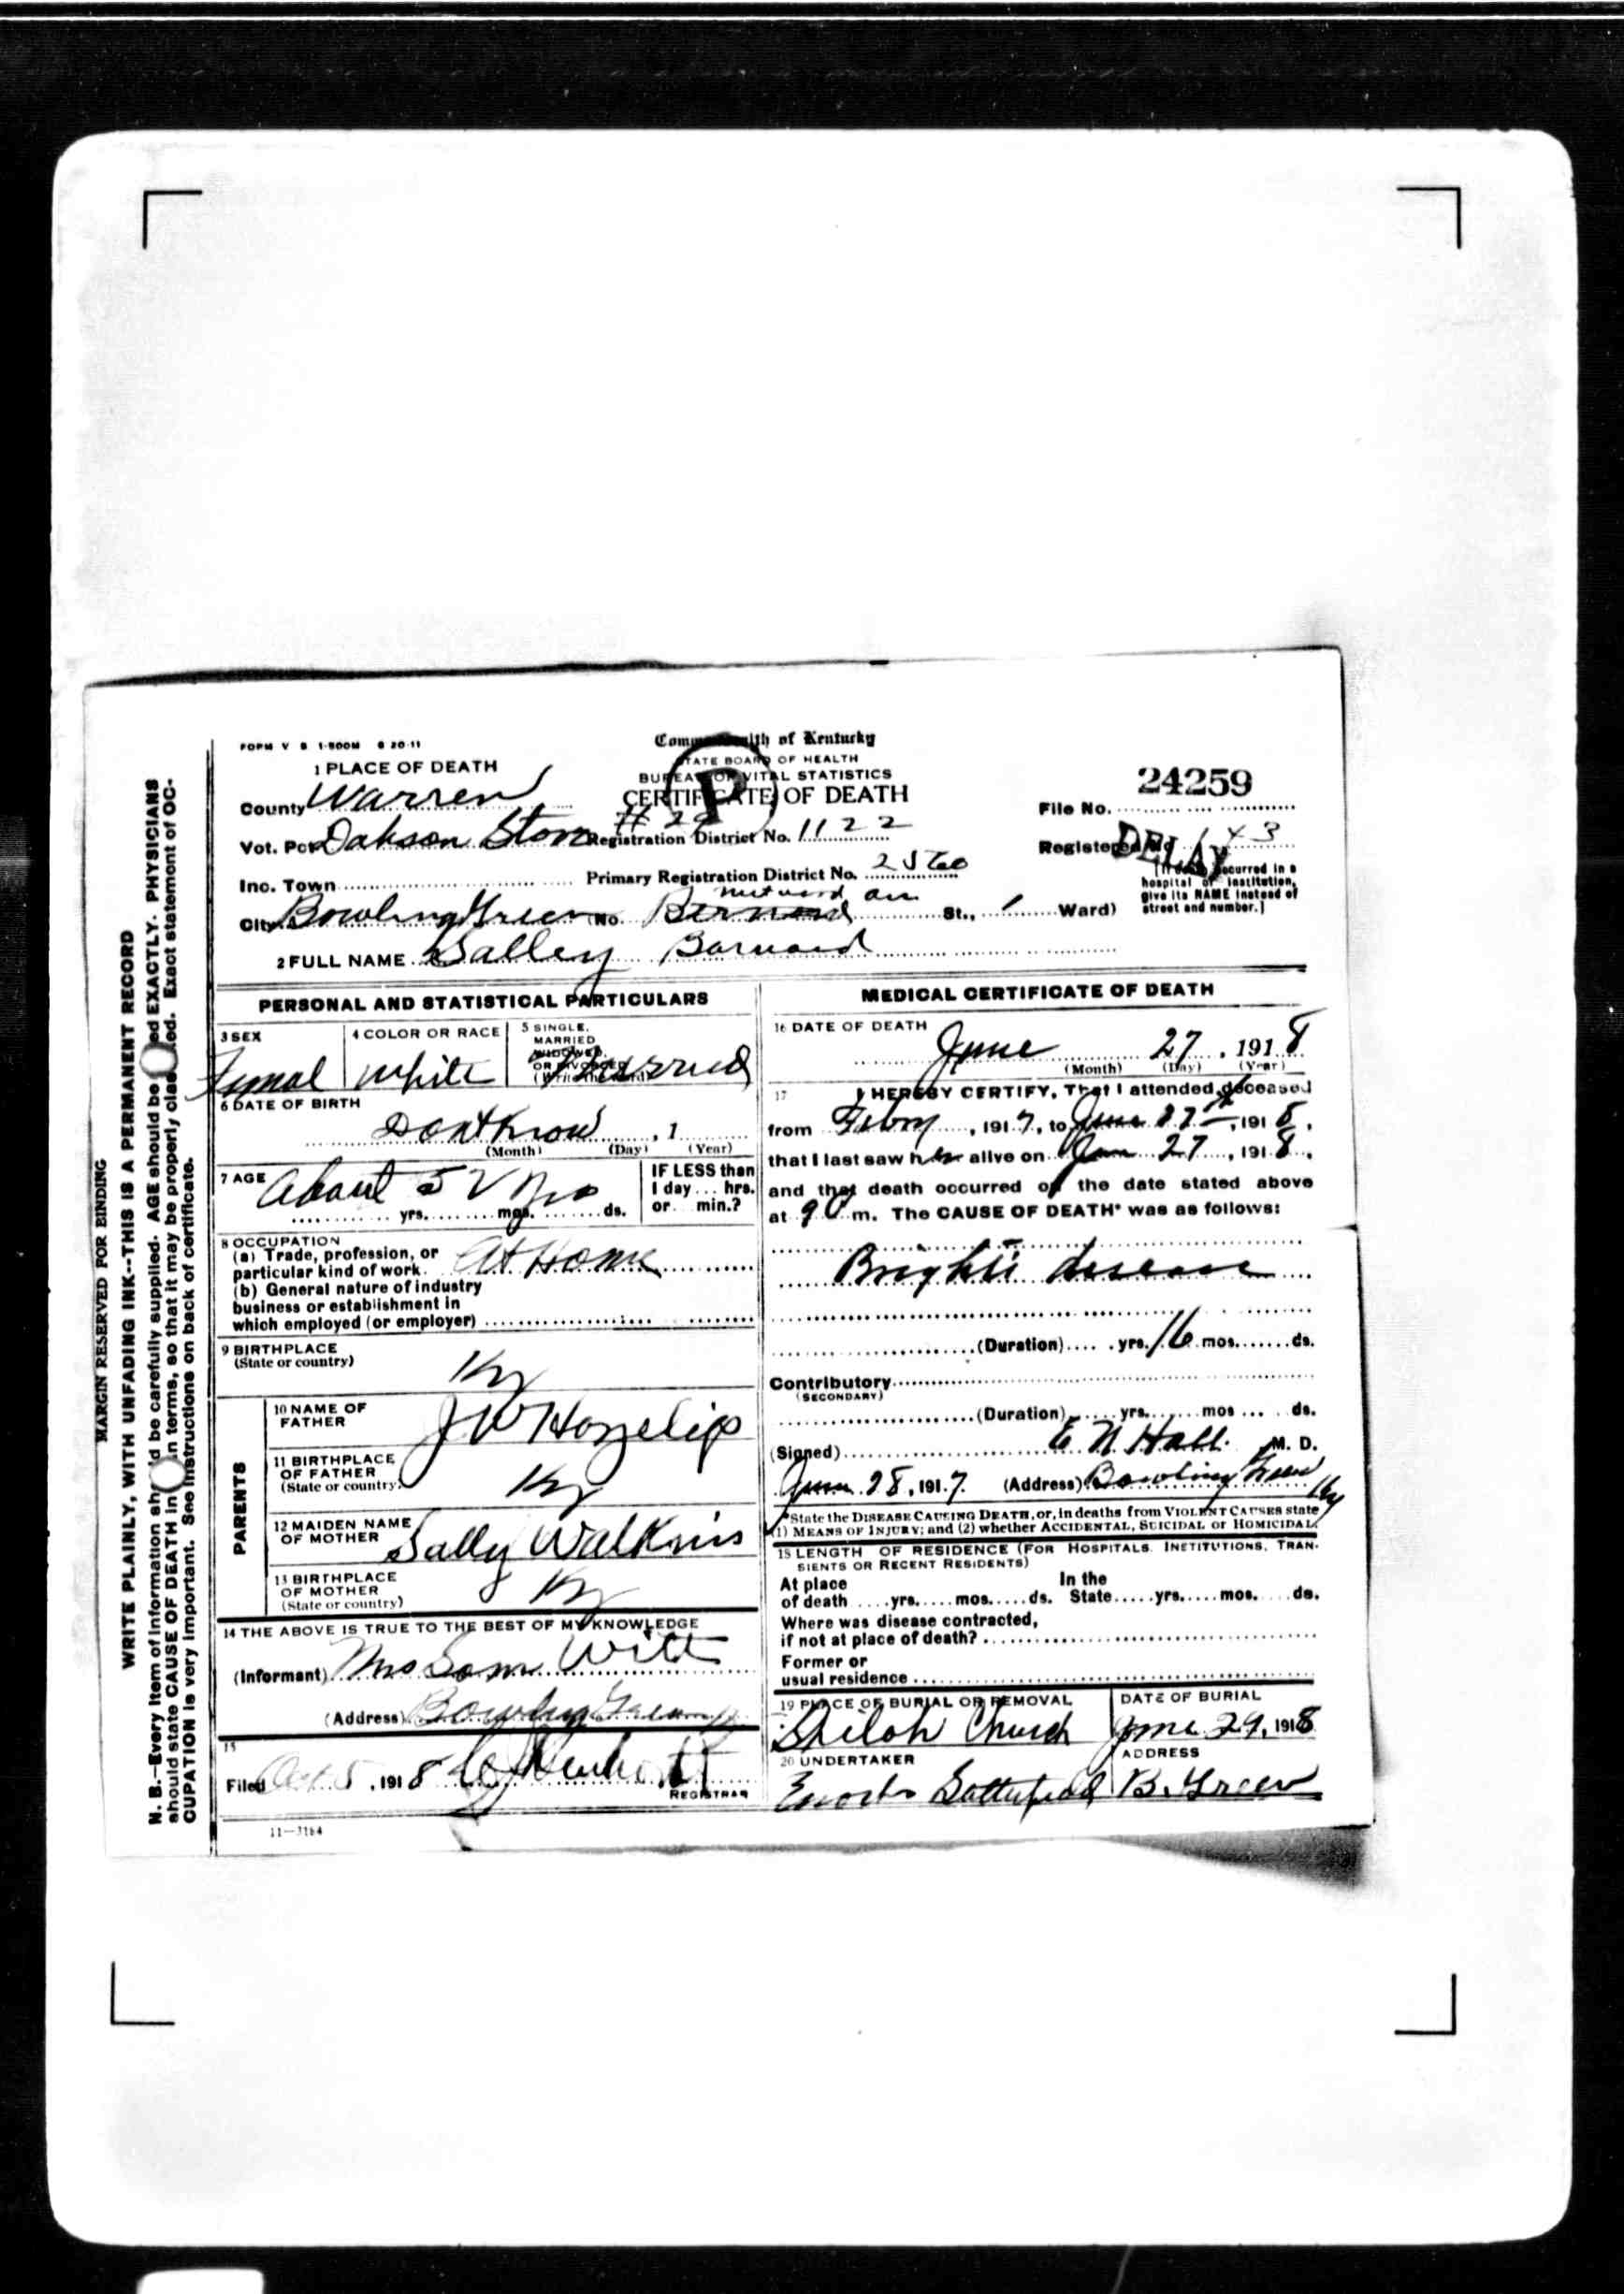 MARGIN RESERVED FOR BINDING
WRITE PLAINLY, WITH UNFADING INK--THIS IS A PERMANENT RECORD
N. B.—Every item of information be carefully supplied. AGE should be EXACTLY. PHYSICIANS
should state CAUSE OF DEATH in in terms, so that it may be properly Exact statement of OC-
CUPATION is very important. See instructions on back of certificate.
FORM V S 1-500M 6 20-11
Commonwealth of Kentucky
STATE BOARD OF HEALTH
BUREAU OF VITAL STATISTICS
CERTIFICATE OF DEATH
P
1 PLACE OF DEATH
County Warren
Vot. Pct Registration District No. 1122
Inc. Town Primary Registration District No. 2560
City Bowling Green No. St., Ward)
24259
File No.
Registered No 43
DELAY
[If death occurred in a
hospital or institution,
give its NAME instead of
street and number.]
2 FULL NAME Salley Barnard
PERSONAL AND STATISTICAL PARTICULARS
3 SEX Femal
4 COLOR OR RACE White
5 SINGLE,
MARRIED
WIDOWED,
OR DIVORCED
(Write the word)
Married
6 DATE OF BIRTH
Dont know , 1
(Month) (Day) (Year)
7 AGE About 52 yrs. mos. ds.
IF LESS than
1 day ... hrs.
or min.?
8 OCCUPATION
(a) Trade, profession, or
particular kind of work. At Home
(b) General nature of industry
business or establishment in
which employed (or employer)
9 BIRTHPLACE
(State or country)
Ky
PARENTS
10 NAME OF
FATHER
J W Hazelip
11 BIRTHPLACE
OF FATHER
(State or country)
Ky
12 MAIDEN NAME
OF MOTHER
Sally Walkins
13 BIRTHPLACE
OF MOTHER
(State or country)
Ky
14 THE ABOVE IS TRUE TO THE BEST OF MY KNOWLEDGE
(Informant) Mrs Sam Witt
(Address) Bowling Green Ky
15
Filed Oct 5, 1918
REGISTRAR
11—3164
MEDICAL CERTIFICATE OF DEATH
16 DATE OF DEATH
June 27, 1918
(Month) (Day) (Year)
17 I HEREBY CERTIFY, That I attended deceased
from Febry, 1917, to June 27th, 1918,
that I last saw her alive on June 27, 1918,
and that death occurred on the date stated above
at 9 m. The CAUSE OF DEATH* was as follows:
Brights disease
(Duration) yrs. 16 mos. ds.
Contributory
(SECONDARY)
(Duration) yrs. mos ds.
(Signed) E N Hall M. D.
June 28, 1917. (Address) Bowling Green Ky
*State the DISEASE CAUSING DEATH, or, in deaths from VIOLENT CAUSES state
(1) MEANS OF INJURY; and (2) whether ACCIDENTAL, SUICIDAL or HOMICIDAL.
18 LENGTH OF RESIDENCE (FOR HOSPITALS. INSTITUTIONS, TRAN-
SIENTS OR RECENT RESIDENTS)
At place In the
of death yrs. mos. ds. State yrs. mos. ds.
Where was disease contracted,
if not at place of death?
Former or
usual residence
19 PLACE OF BURIAL OR REMOVAL
Shiloh Church
DATE OF BURIAL
June 29, 1918
20 UNDERTAKER
ADDRESS
B. Green